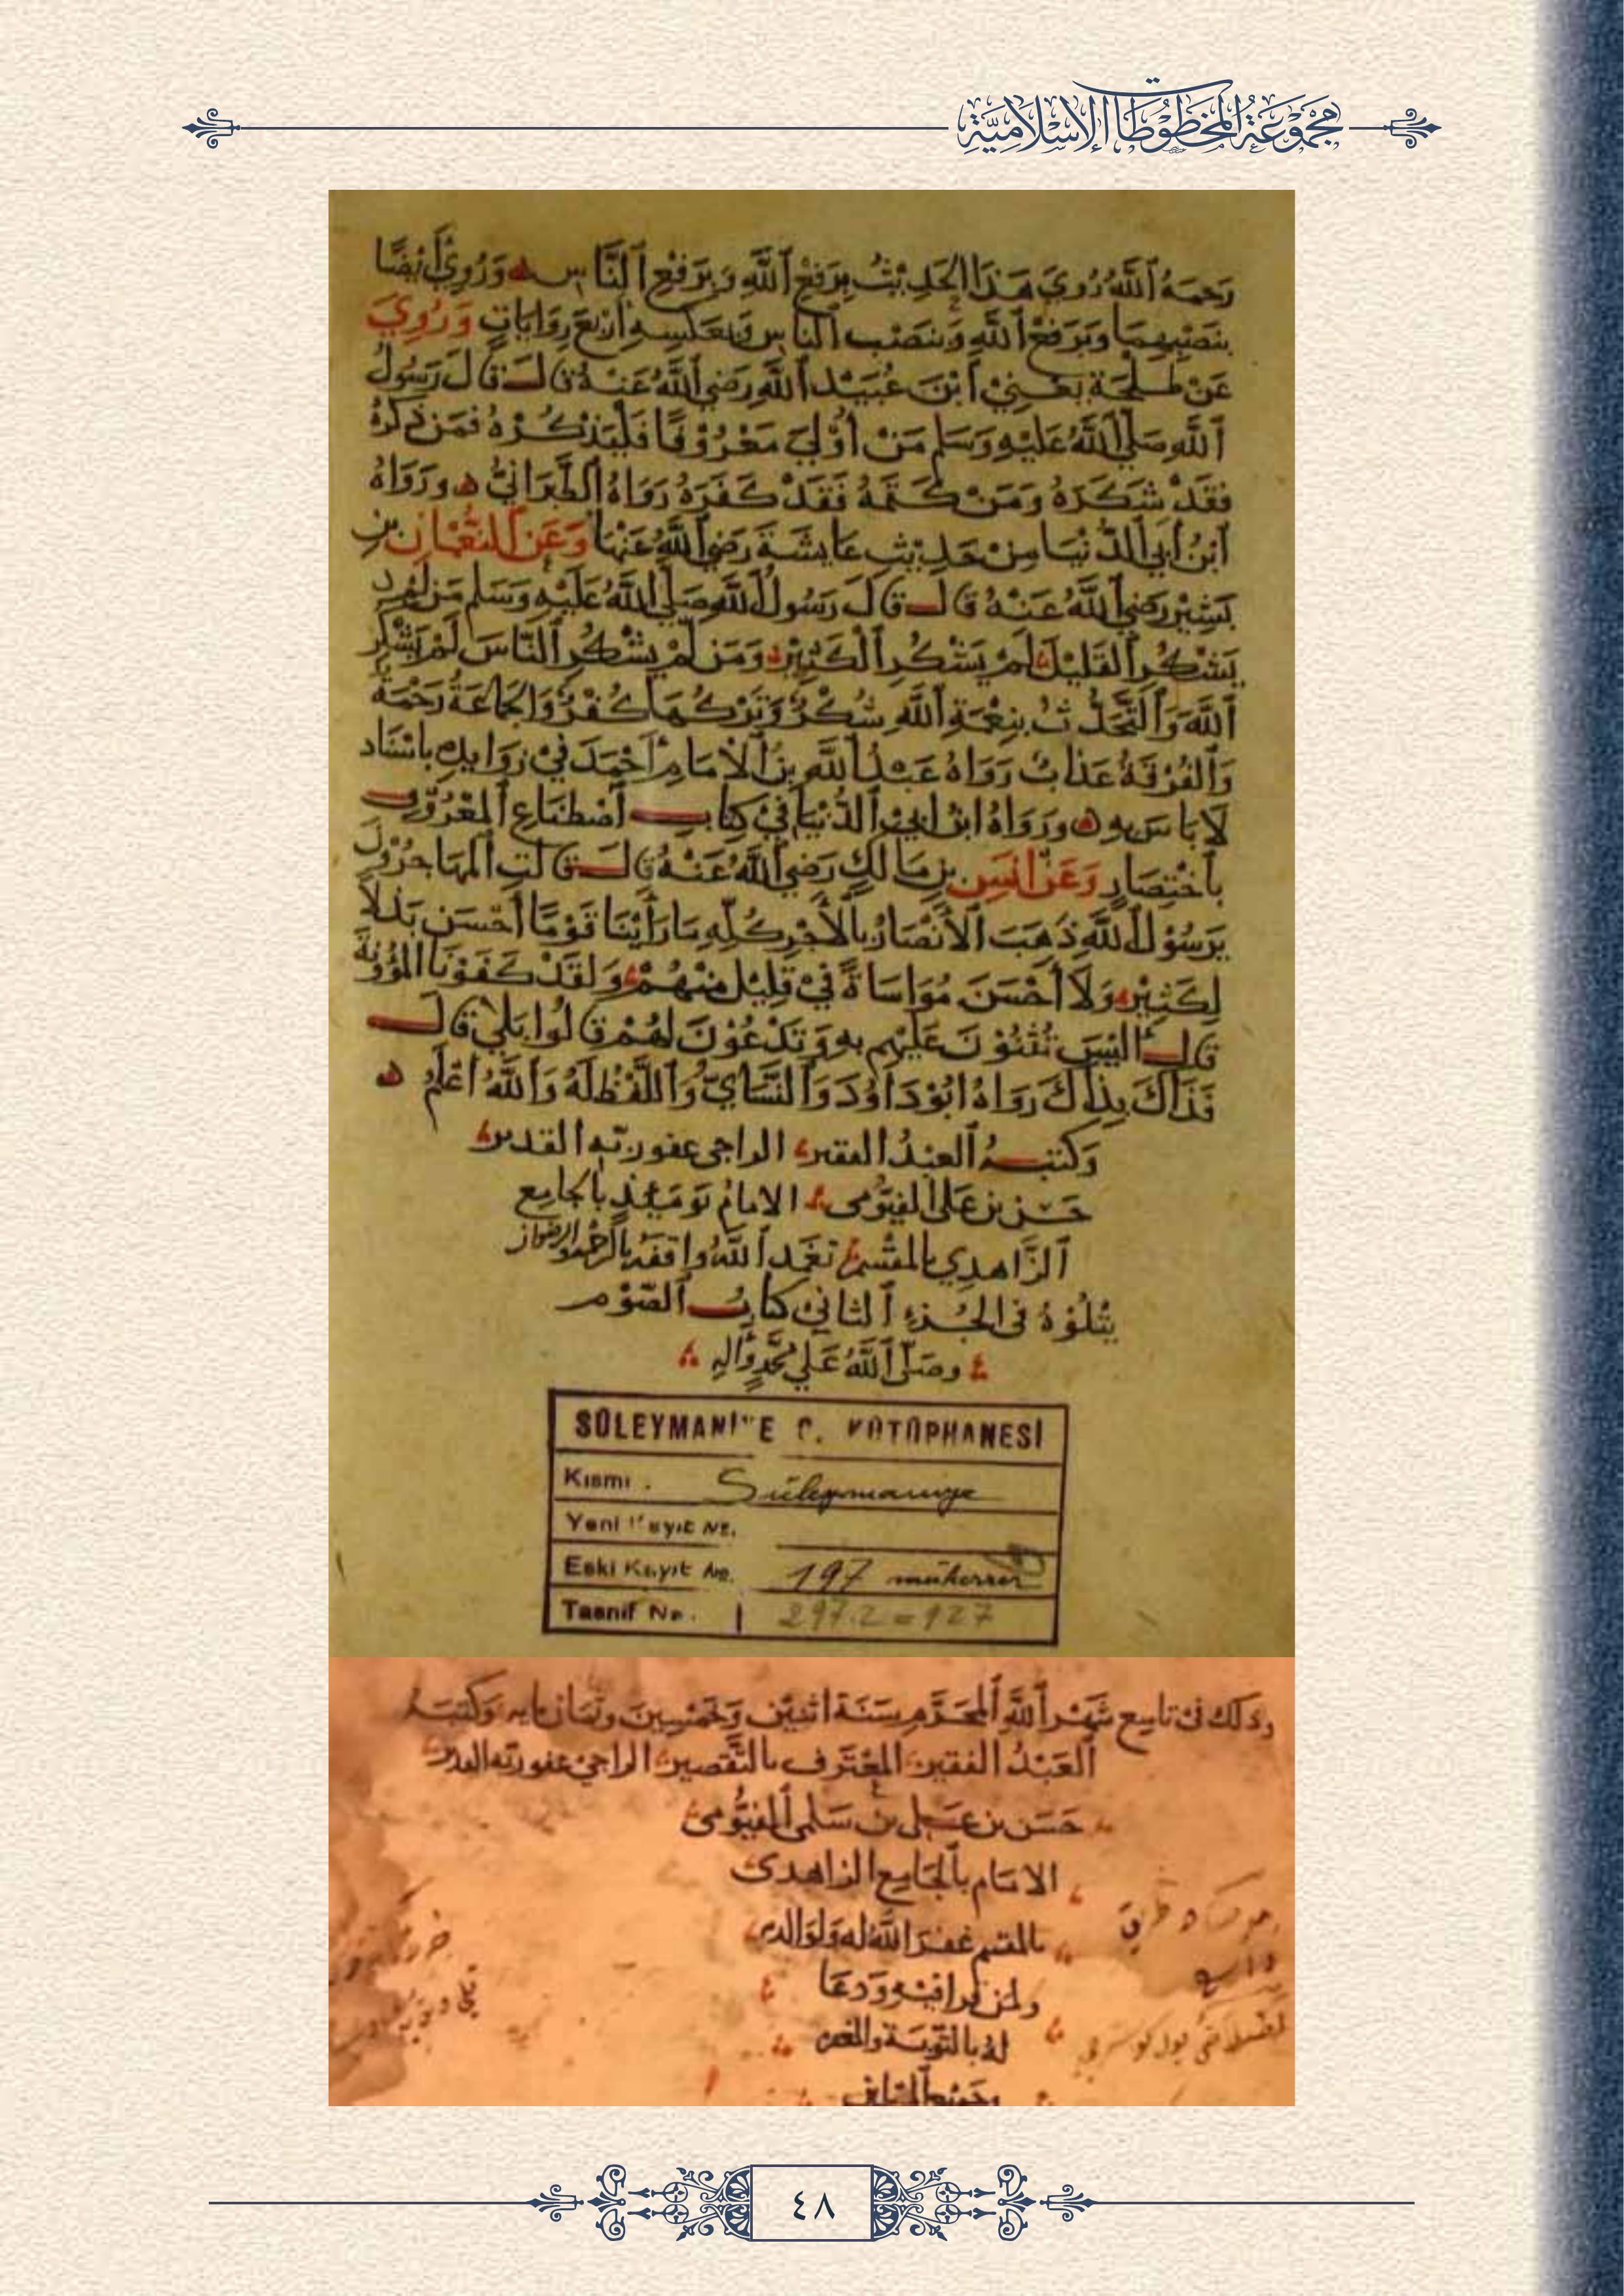 مجموعة المخطوطات الإسلامية
رَحِمَهُ ٱللَّهُ رُوِيَ هَذَا الحَدِيْثُ بِرَفْعِ ٱللَّهِ وَبِرَفْعِ ٱلنَّاسِ ۞ وَرُوِيَ أَيْضًا
بِنَصْبِهِمَا وَبِرَفْعِ ٱللَّهِ وَنَصْبِ ٱلناسِ وَبِعَكْسِهِ أَرْبَعَ رِوَايَاتٍ وَرُوِيَ
عَنْ طَلْحَةَ يَعْنِيْ ٱبْنَ عُبَيْدِ ٱللَّهِ رَضِيَ ٱللَّهُ عَنْهُ قَالَ قَالَ رَسُولُ
ٱللَّهِ صَلَّى ٱللَّهُ عَلَيْهِ وَسَلَم مَنْ أُوْلِيَ مَعْرُوْفًا فَلْيَذْكُرْهُ فَمَنْ ذَكَرَهُ
فَقَدْ شَكَرَهُ وَمَنْ كَتَمَهُ فَقَدْ كَفَرَهُ رَوَاهُ ٱلطَّبَرَانِيُّ ۞ وَرَوَاهُ
ٱبْنُ أَبِي ٱلدُّنْيَا مِنْ حَدِيْثِ عَايِشَةَ رَضِيَ ٱللَّهُ عَنْهَا وَعَنِ ٱلنُّعْمَانِ بْنِ
بَشِيْرٍ رَضِيَ ٱللَّهُ عَنْهُ قَالَ قَالَ رَسُولُ ٱللَّهِ صَلَّى ٱللَّهُ عَلَيْهِ وَسَلَم مَنْ لَمْ
يَشْكُرِ ٱلقَلِيْلَ لَمْ يَشْكُرِ ٱلْكَثِيْرَ وَمَنْ لَمْ يَشْكُرِ ٱلنَّاسَ لَمْ يَشْكُرِ
ٱللَّهَ وَٱلتَّحَدُّثُ بِنِعْمَةِ ٱللَّهِ شُكْرٌ وَتَرْكُهَا كُفْرٌ وَالجَمَاعَةُ رَحْمَةٌ
وَٱلفُرْقَةُ عَذَابٌ رَوَاهُ عَبْدُ ٱللَّهِ بنُ ٱلْامَامِ أَحْمَدَ فِيْ زَوَايِدِهِ بِاسْنَادٍ
لَا بَاسَ بِهِ ۞ وَرَوَاهُ ابْنُ ابِيْ ٱلدُّنْيَا فِيْ كِتَابِ ٱصْطِنَاعِ ٱلمَعْرُوْفِ
بٱخْتِصَارٍ وَعَنْ انَسِ بنِ مَالِكٍ رَضِيَ ٱللَّهُ عَنْهُ قَالَ قَالَتِ ٱلمُهَاجِرُوْنَ
يَرَسُوْلَ ٱللَّهِ ذَهَبَ ٱلأَنْصَارُ بِالْأَجْرِ كُلِّهِ مَا رَأَيْنَا قَوْمًا أَحْسَنَ بَذْلًا
لِكَثِيْرٍ وَلَا أَحْسَنَ مُوَاسَاةً فِيْ قَلِيْلٍ مِنْهُمْ وَلَقَدْ كَفَوْنَا المُؤْوْنَةَ
قَالَ الَيْسَ تُثْنُوْنَ عَلَيْهِم بِهِ وَتَدْعُوْنَ لَهُمْ قَالُوا بَلَى قَالَ
فَذَاكَ بِذَاكَ رَوَاهُ ابُوْ دَاوُدَ وَٱلنَّسَايُّ وَٱللَّفْظُ لَهُ وَٱللَّهُ أَعْلَمُ ۞
وَكَتَبَهُ ٱلعَبْدُ الفقير الراجى عفو ربّه القدير
حَسَن بن عَلى الفيُّومى الامامُ يَوْمَيْذٍ بالجامِع
ٱلزَّاهدِي بالمقْسم تغَمد ٱللَّهُ واقفَه بالرحمة والرضوان
يَتْلُوْهُ فى الجُزءِ ٱلثاني كتابُ ٱلصَّوْم
وصَلّى ٱللَّهُ عَلي مُحَمَّدٍ وَالِهِ
SÜLEYMANİYE C. KÜTÜPHANESİ
Kısmı . Süleymaniye
Yeni Kayıt No.
Eski Kayıt No. 197 mükerrer
Tasnif No. 297.2 = 927
وذلك فى تاسِع شَهْرِ ٱللَّهِ ٱلمُحَرَّمِ سَنَةَ اثنيْن وَخَمْسِينَ وثمان مايه وَكتبَهُ
ٱلعَبْدُ الفقير المعْتَرف بالتَّقصير الراجيْ عفو ربّه القدير
حَسَن بن عَلى بن سَلمى ٱلفيُّومى
الامَام بالجَامِع الزاهدى
بالمقسم غفرَ اللَّه له وَلوَالديه
ولمن قرا فيه وَدعَا
لهُ بالتّوبَة والمغفرة
وَجَميْع ٱلمسلمين
٤٨